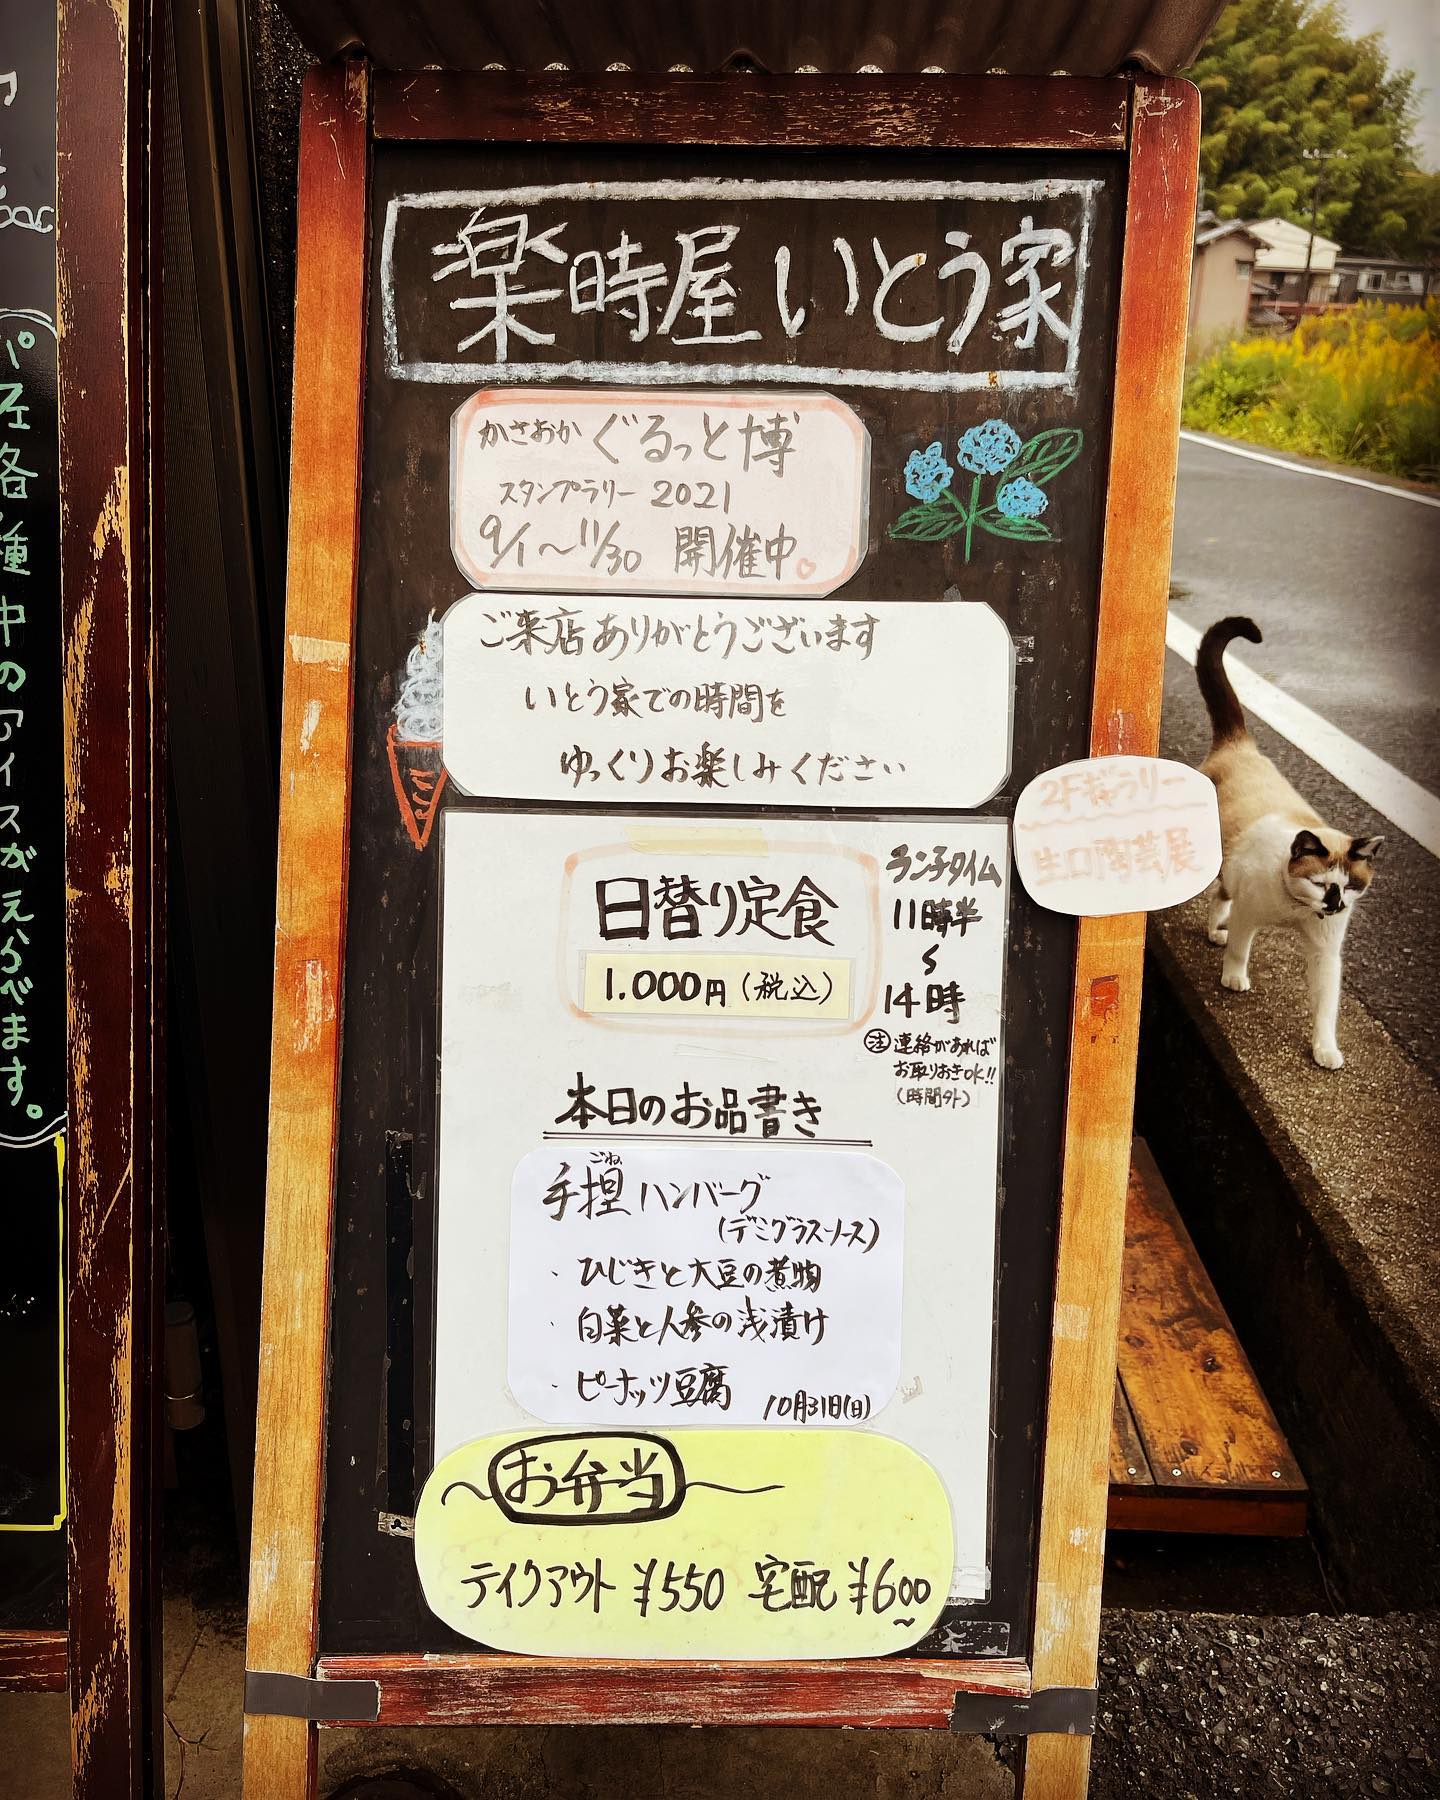 楽時屋 いとう家
かさおか ぐるっと博
スタンプラリー 2021
9/1〜11/30 開催中♡
ご来店ありがとうございます
いとう家での時間を
ゆっくりお楽しみください
2Fギャラリー
生口陶芸展
日替り定食
1.000円(税込)
ランチタイム
11時半
〜
14時
注 連絡があれば
お取りおきOK!!
(時間外)
本日のお品書き
ごね
手捏ハンバーグ
(デミグラスソース)
・ひじきと大豆の煮物
・白菜と人参の浅漬け
・ピーナッツ豆腐
10月31日(日)
〜お弁当〜
テイクアウト ¥550 宅配 ¥600〜
各種中のアイスがえらべます。